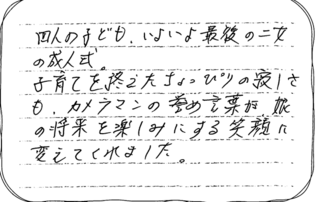 四人の子ども、いよいよ最後の二女
の成人式。
子育てを終えたちょっぴりの寂しさ
も、カメラマンの誉め言葉が娘
の将来を楽しみにする笑顔に
変えてくれました。